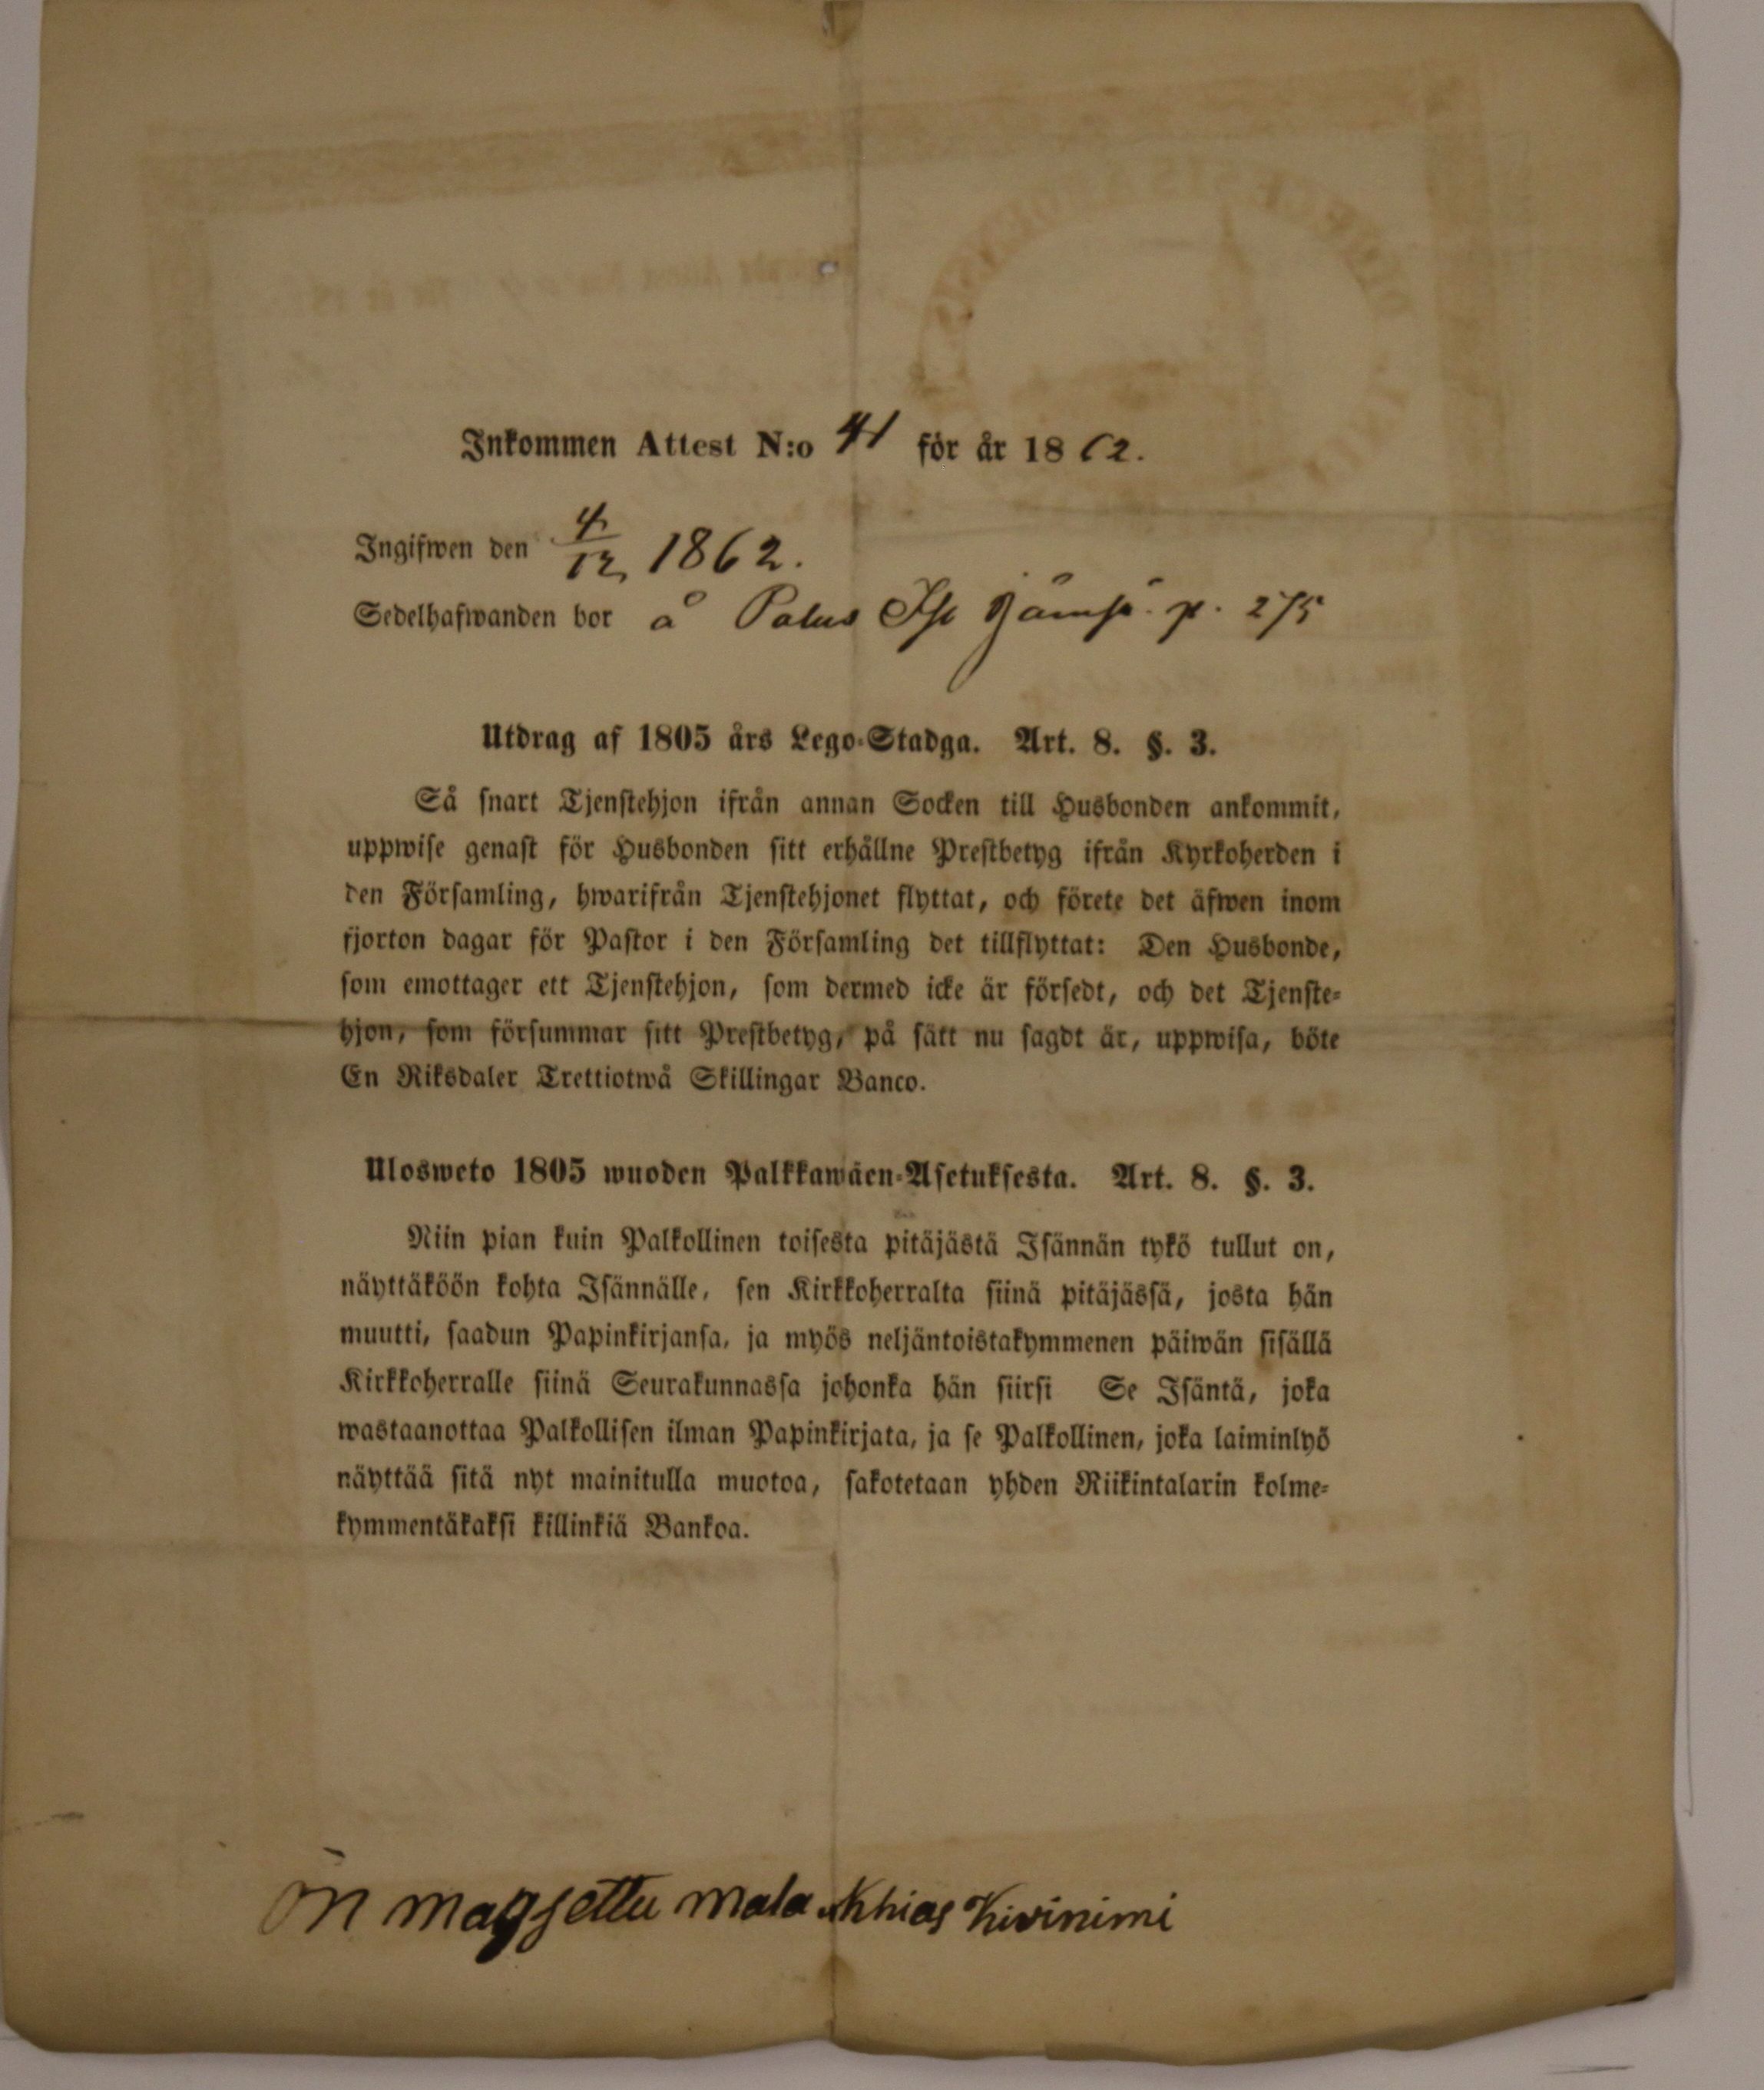 Inkommen Attest N:o 41 för år 1862.
Ingifwen den 4/12 1862.
Sedelhafwanden bor å Palus Jämsä p. 275
Utdrag af 1805 års Lego-Stadga. Art. 8. §. 3.
Så snart Tjenstehjon ifrån annan Socken till Husbonden ankommit,
uppwise genast för Husbonden sitt erhållne Prestbetyg ifrån Kyrkoherden i
den Församling, hwarifrån Tjenstehjonet flyttat, och förete det äfwen inom
fjorton dagar för Pastor i den Församling det tillflyttat: Den Husbonde,
som emottager ett Tjenstehjon, som dermed icke är försedt, och det Tjenste-
hjon, som försummar sitt Prestbetyg, på sätt nu sagdt är, uppwisa, böte
En Riksdaler Trettiotwå Skillingar Banco.
Ulosweto 1805 wuoden Palkkawäen-Asetuksesta. Art. 8. §. 3.
Niin pian kuin Palkollinen toisesta pitäjästä Isännän tykö tullut on,
näyttäköön kohta Isännälle, sen Kirkkoherralta siinä pitäjässä, josta hän
muutti, saadun Papinkirjansa, ja myös neljäntoistakymmenen päiwän sisällä
Kirkkoherralle siinä Seurakunnassa johonka hän siirsi Se Isäntä, joka
wastaanottaa Palkollisen ilman Papinkirjata, ja se Palkollinen, joka laiminlyö
näyttää sitä nyt mainitulla muotoa, sakotetaan yhden Riikintalarin kolme-
kymmentäkaksi killinkiä Bankoa.
On maqsettu Malakhias Kivinimi